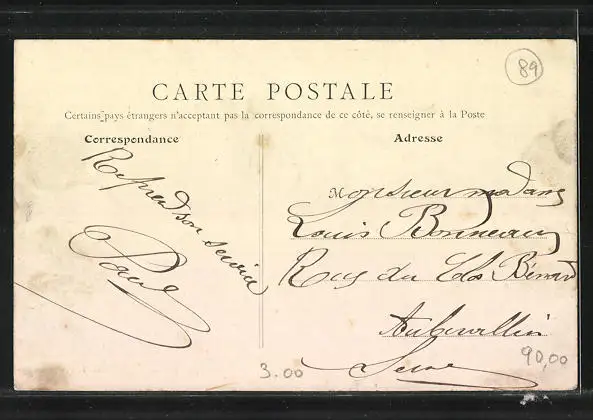 89
CARTE POSTALE
Certains pays étrangers n'acceptant pas la correspondance de ce côté, se renseigner à la Poste
Correspondance
Reprend son service
Paul
Adresse
Monsieur madame
Louis Bonneau
Rue du Clos Bénard
Aubervillier
Seine
3.00
90,00